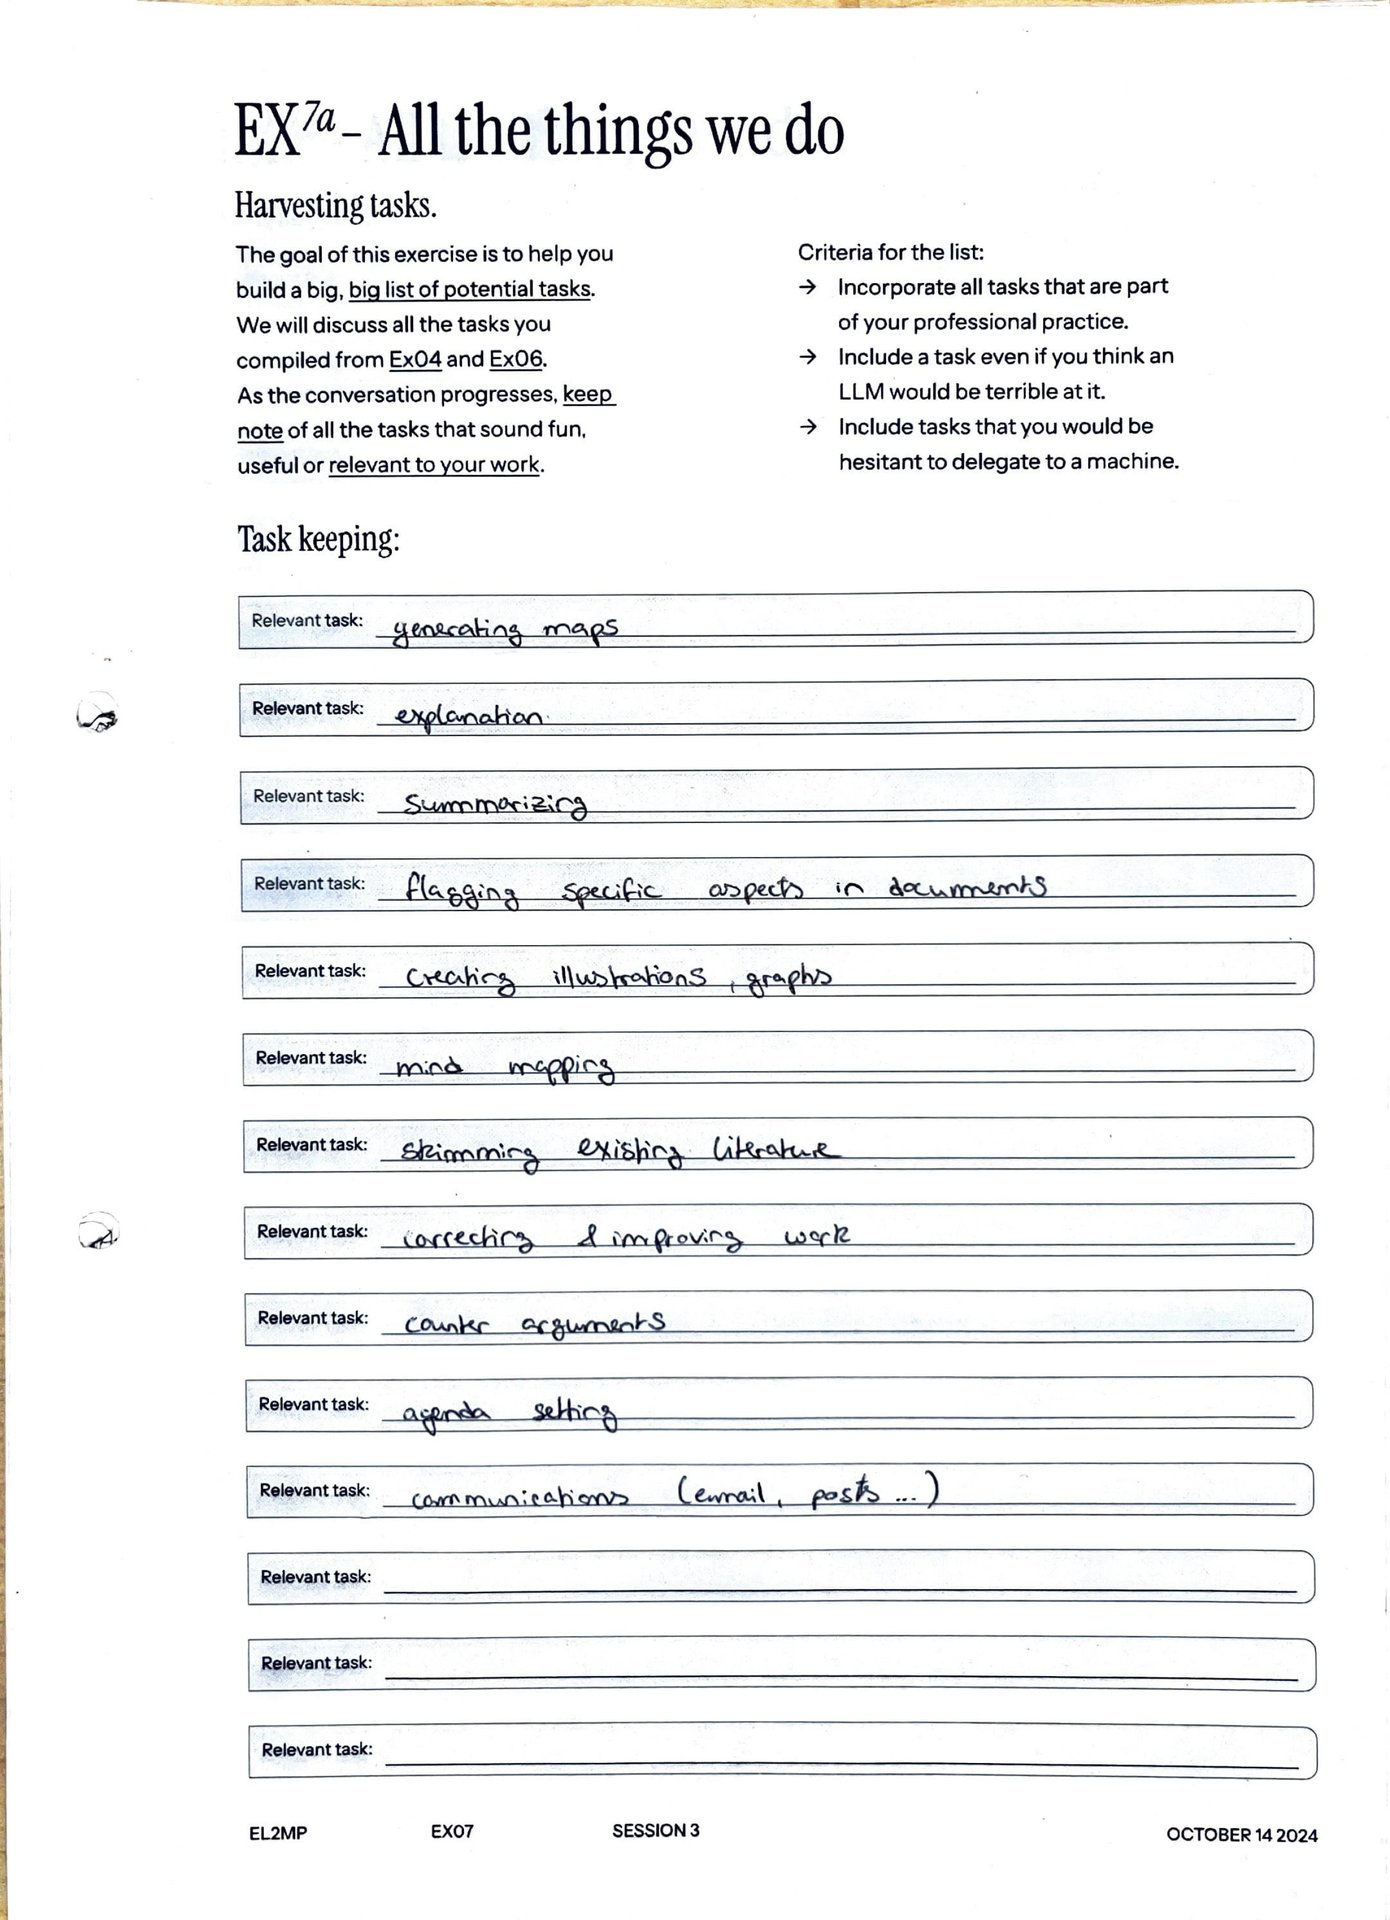 EX7a – All the things we do
Harvesting tasks.
The goal of this exercise is to help you
build a big, big list of potential tasks.
We will discuss all the tasks you
compiled from Ex04 and Ex06.
As the conversation progresses, keep
note of all the tasks that sound fun,
useful or relevant to your work.
Criteria for the list:
→ Incorporate all tasks that are part
of your professional practice.
→ Include a task even if you think an
LLM would be terrible at it.
→ Include tasks that you would be
hesitant to delegate to a machine.
Task keeping:
Relevant task: generating maps
Relevant task: explanation
Relevant task: summarizing
Relevant task: flagging specific aspects in documents
Relevant task: creating illustrations, graphs
Relevant task: mind mapping
Relevant task: skimming existing literature
Relevant task: correcting & improving work
Relevant task: counter arguments
Relevant task: agenda setting
Relevant task: communications (email, posts ...)
Relevant task:
Relevant task:
Relevant task:
EL2MP EX07 SESSION 3 OCTOBER 14 2024